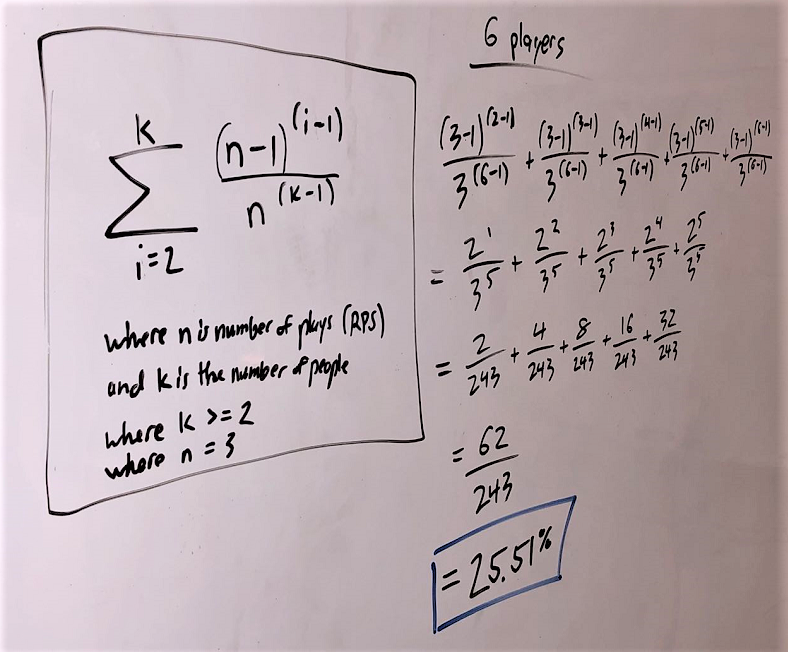 K
Σ (n-1)^(i-1) / n^(k-1)
i=2
where n is number of plays (RPS)
and k is the number of people
where k >= 2
where n = 3
6 players
(3-1)^(2-1) / 3^(6-1) + (3-1)^(3-1) / 3^(6-1) + (3-1)^(4-1) / 3^(6-1) + (3-1)^(5-1) / 3^(6-1) + (3-1)^(6-1) / 3^(6-1)
= 2^1 / 3^5 + 2^2 / 3^5 + 2^3 / 3^5 + 2^4 / 3^5 + 2^5 / 3^5
= 2/243 + 4/243 + 8/243 + 16/243 + 32/243
= 62/243
= 25.51%